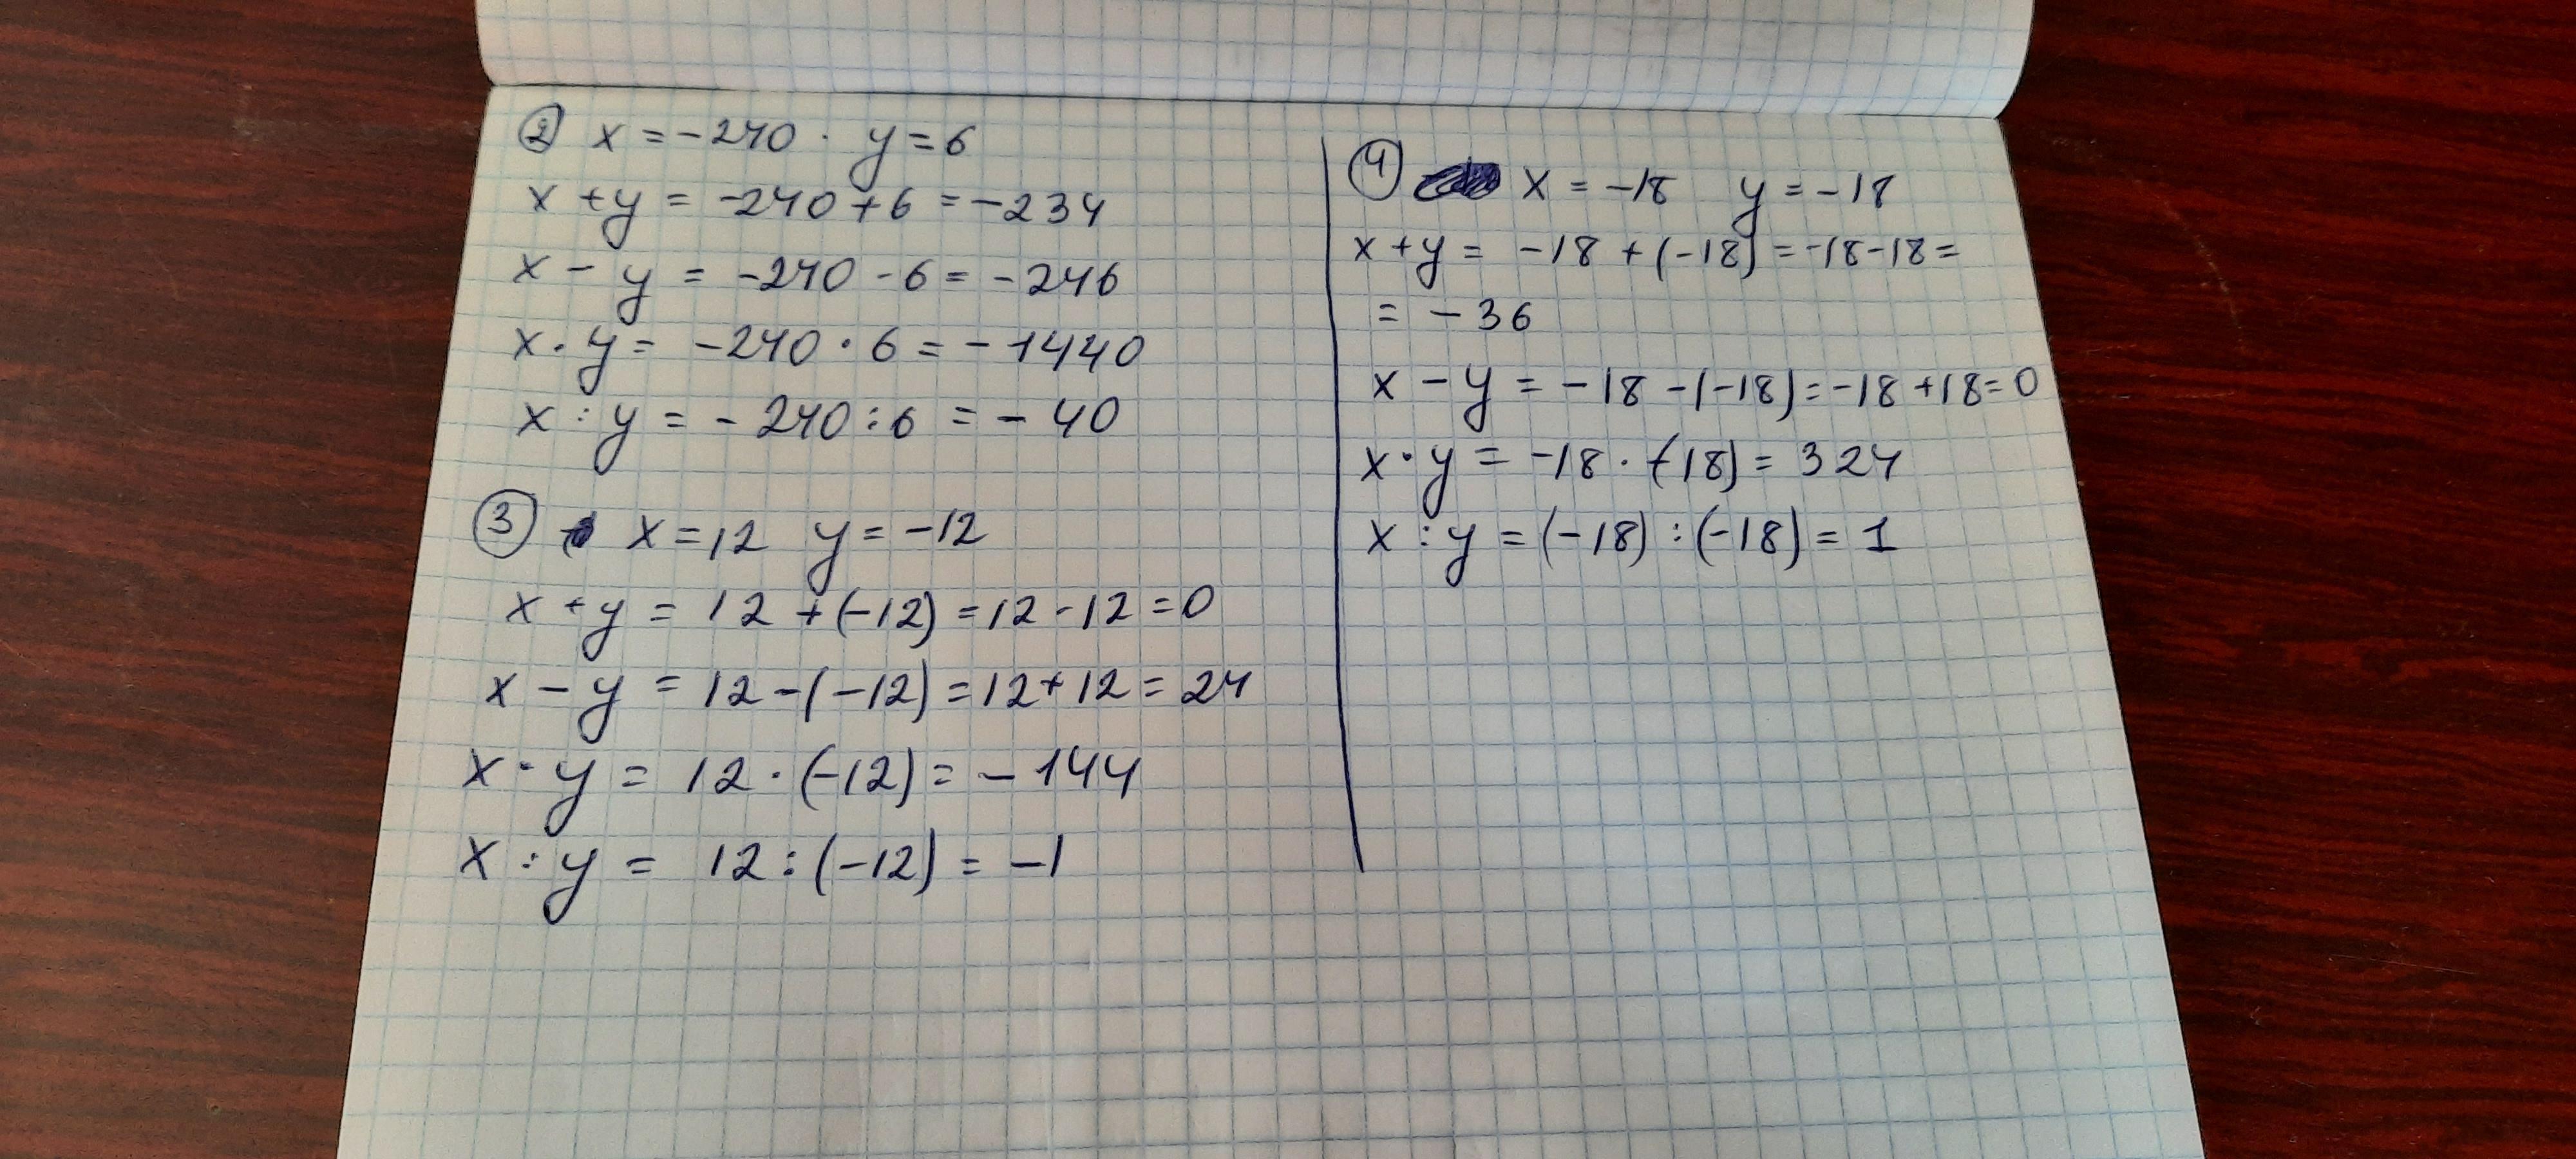 ② x = -240 · y = 6
x + y = -240 + 6 = -234
x - y = -240 - 6 = -246
x · y = -240 · 6 = -1440
x : y = -240 : 6 = -40
③ x = 12 y = -12
x + y = 12 + (-12) = 12 - 12 = 0
x - y = 12 - (-12) = 12 + 12 = 24
x · y = 12 · (-12) = -144
x : y = 12 : (-12) = -1
④ x = -18 y = -18
x + y = -18 + (-18) = -18 - 18 =
= -36
x - y = -18 - (-18) = -18 + 18 = 0
x · y = -18 · (-18) = 324
x : y = (-18) : (-18) = 1